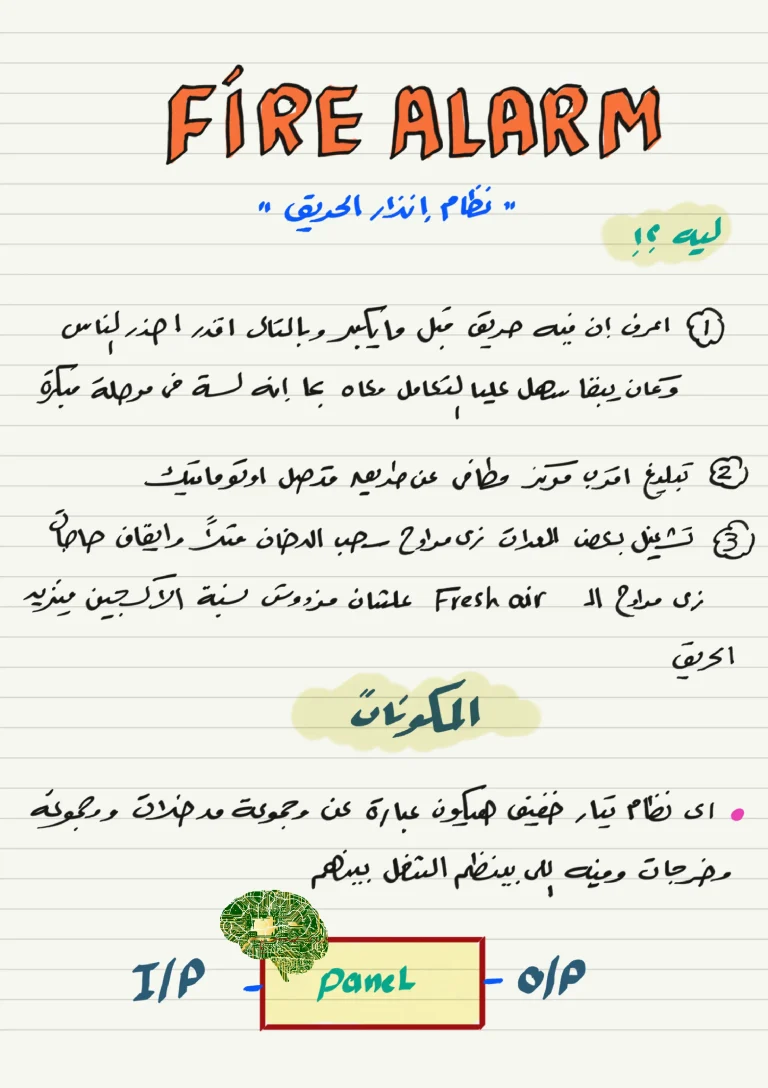 FIRE ALARM
" نظام إنذار الحريق "
ليه ؟!
① اعرف ان فيه حريق قبل مايكبر وبالتالى اقدر احذر الناس
وعشان يبقا سهل عليا التعامل معاه بما إنه لسة فى مرحلة مبكرة
② تبليغ اقرب مركز مطافى عن طريق متصل اوتوماتيك
③ تشغيل بعض المعدات زى مراوح سحب الدخان مثلاً وايقاف حاجات
زى مراوح الـ Fresh air علشان مزودش نسبة الأكسجين فيزيد
الحريق
المكونات
• اى نظام تيار خفيف هيكون عبارة عن مجموعة مدخلات ومجموعة
مخرجات وفيه اللى بينظم الشغل بينهم
I/P - Panel - O/P